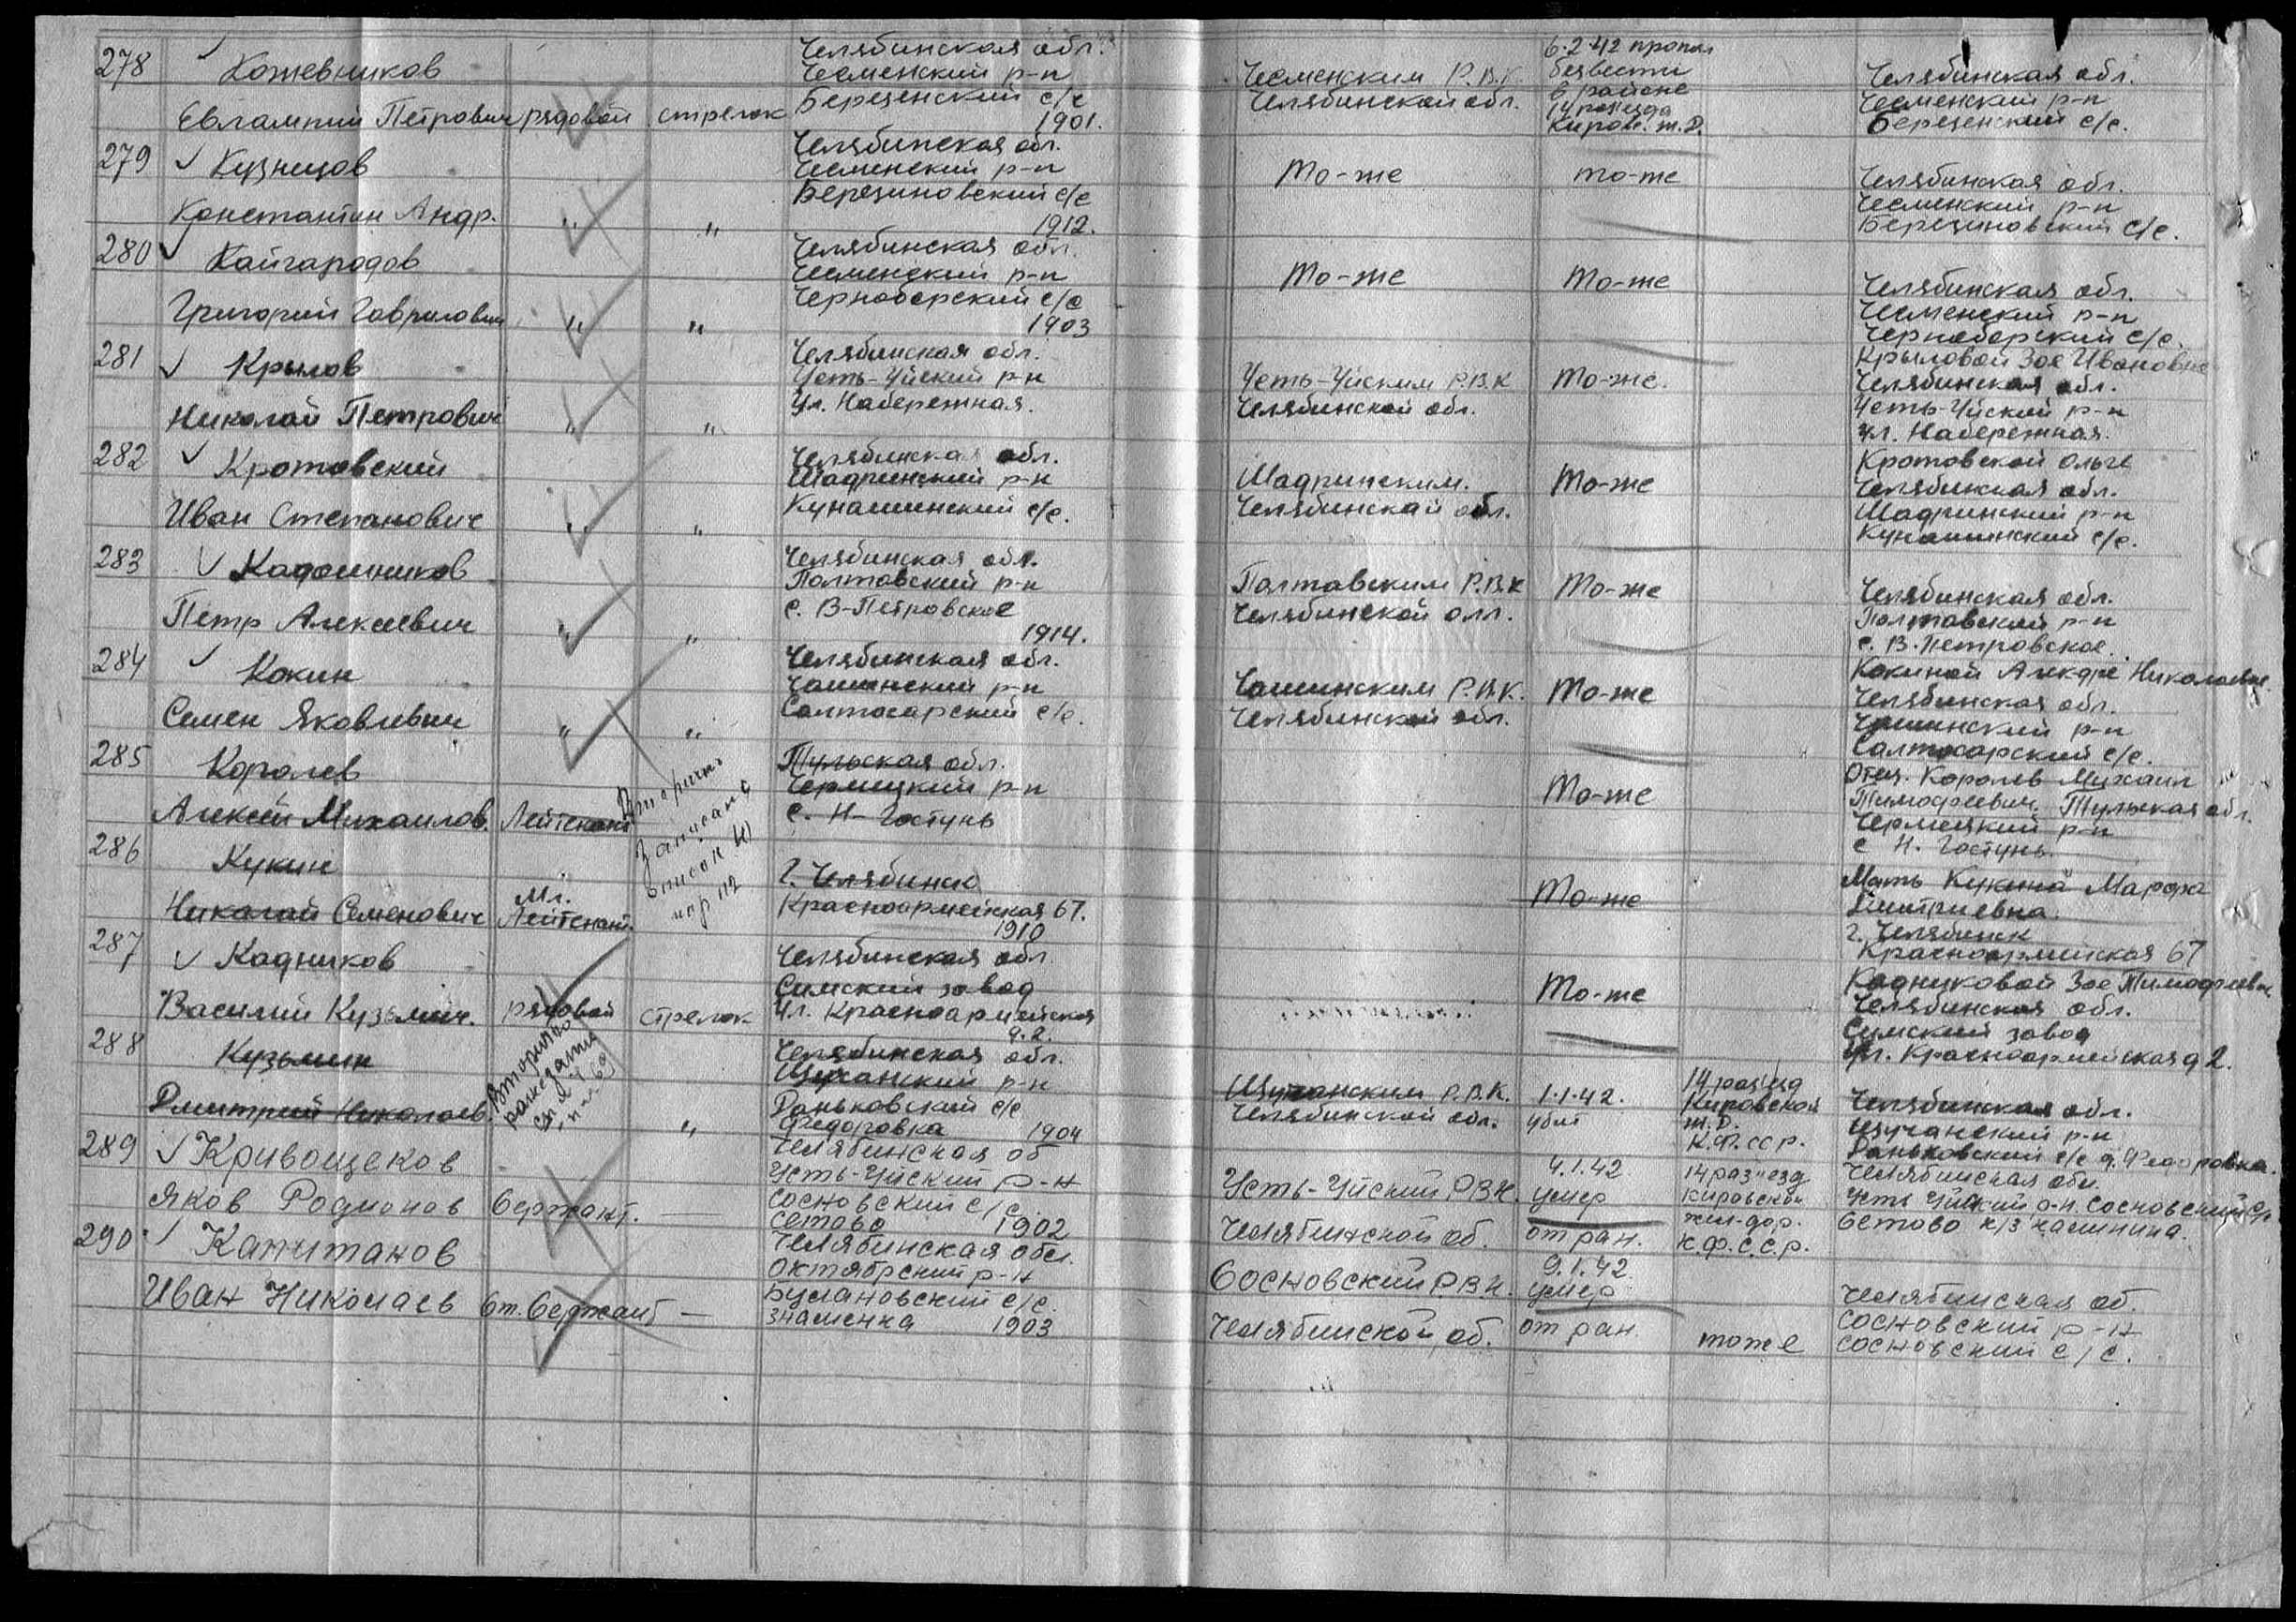 278 Кожевников
Евлампий Петрович рядовой стрелок
Челябинская обл.
Чесменский р-н
Березенский с/с
1901.
Чесменским Р.В.К.
Челябинской обл.
6.2.42 пропал
безвести
в районе
14 разезда
Киров. ж.д.
Челябинская обл.
Чесменский р-н
Березенский с/с.
279 Кузнецов
Константин Андр. " "
Челябинская обл.
Чесменский р-н
Березиновский с/с
1912.
То-же
то-же
Челябинская обл.
Чесменский р-н
Березиновский с/с.
280 Кайгародов
Григорий Гаврилович " "
Челябинская обл.
Чесменский р-н
Черноборский с/с
1903
То-же
То-же
Челябинская обл.
Чесменский р-н
Черноборский с/с.
281 Крылов
Николай Петрович " "
Челябинская обл.
Усть-Уйский р-н
Ул. Набережная.
Усть-Уйским Р.В.К
Челябинской обл.
То-же.
Крыловой Зое Ивановне
Челябинская обл.
Усть-Уйский р-н
ул. Набережная.
282 Кротовский
Иван Степанович " "
Челябинская обл.
Шадринский р-н
Кунашинский с/с.
Шадринским.
Челябинской обл.
То-же
Кротовской Ольге
Челябинская обл.
Шадринский р-н
Кунашинский с/с.
283 Кадошников
Петр Алексеевич " "
Челябинская обл.
Полтавский р-н
с. В-Петровское
1914.
Полтавским Р.В.К
Челябинской олл.
То-же
Челябинская обл.
Полтавский р-н
с. В.Петровское.
284 Кокин
Семен Яковлевич " "
Челябинская обл.
Чашинский р-н
Салтосарский с/с.
Чашинским Р.В.К.
Челябинской обл.
То-же
Кокиной Алекдре Николаевне
Челябинская обл.
Чашинский р-н
Салтосарский с/с.
285 Королев
Алексей Михайлов. Лейтенант
Вторично
записано
список
Тульская обл.
Чермицкий р-н
с. Н-Гостунь
То-же
Отец. Королев Михаил
Тимофеевич. Тульская обл.
Чермицкий р-н
с Н. Гостунь.
286 Кукин
Николай Семенович
Мл.
Лейтенант.
г. Челябинск
Красноармейская 67.
1910
То-же
Мать Кукина Марфа
Дмитриевна.
г. Челябинск
Красноармейская 67
287 Кадников
Василий Кузьмич. рядовой стрелок
Челябинская обл.
Симский завод
Ул. Красноармейская
д. 2.
То-же
Кадниковой Зое Тимофеевне
Челябинская обл.
Симский завод
ул. Красноармейская д 2.
288 Кузьмин
Дмитрий Николаев. "
Вторично
Челябинская обл.
Щучанский р-н
Даньковский с/с
Федоровка 1904
Щучанским Р.В.К.
Челябинской обл.
1.1.42.
убит
14 раз'езд
Кировской
ж.д.
К.Ф.ССР.
Челябинская обл.
Щучанский р-н
Даньковский с/с д. Федоровка.
289 Кривощеков
Яков Родионов Сержант. —
Челябинская об
Усть-Уйский р-н
Сосновский с/с.
Сетово 1902
Усть-Уйский РВК.
Челябинской об.
4.1.42
умер
от ран.
14 раз"езд
Кировской
жел-дор.
К.Ф.С.С.Р.
Челябинская обл.
Усть Уйский р-н. Сосновский с/с
Сетово к/з Калинина.
290 Капитанов
Иван Николаев Ст. Сержант —
Челябинская обл.
Октябрский р-н
Булановский с/с.
Знаменка 1903
Сосновский РВК.
Челябинской об.
9.1.42
умер
от ран.
тоже
Челябинская об.
Сосновский р-н
Сосновский с/с.